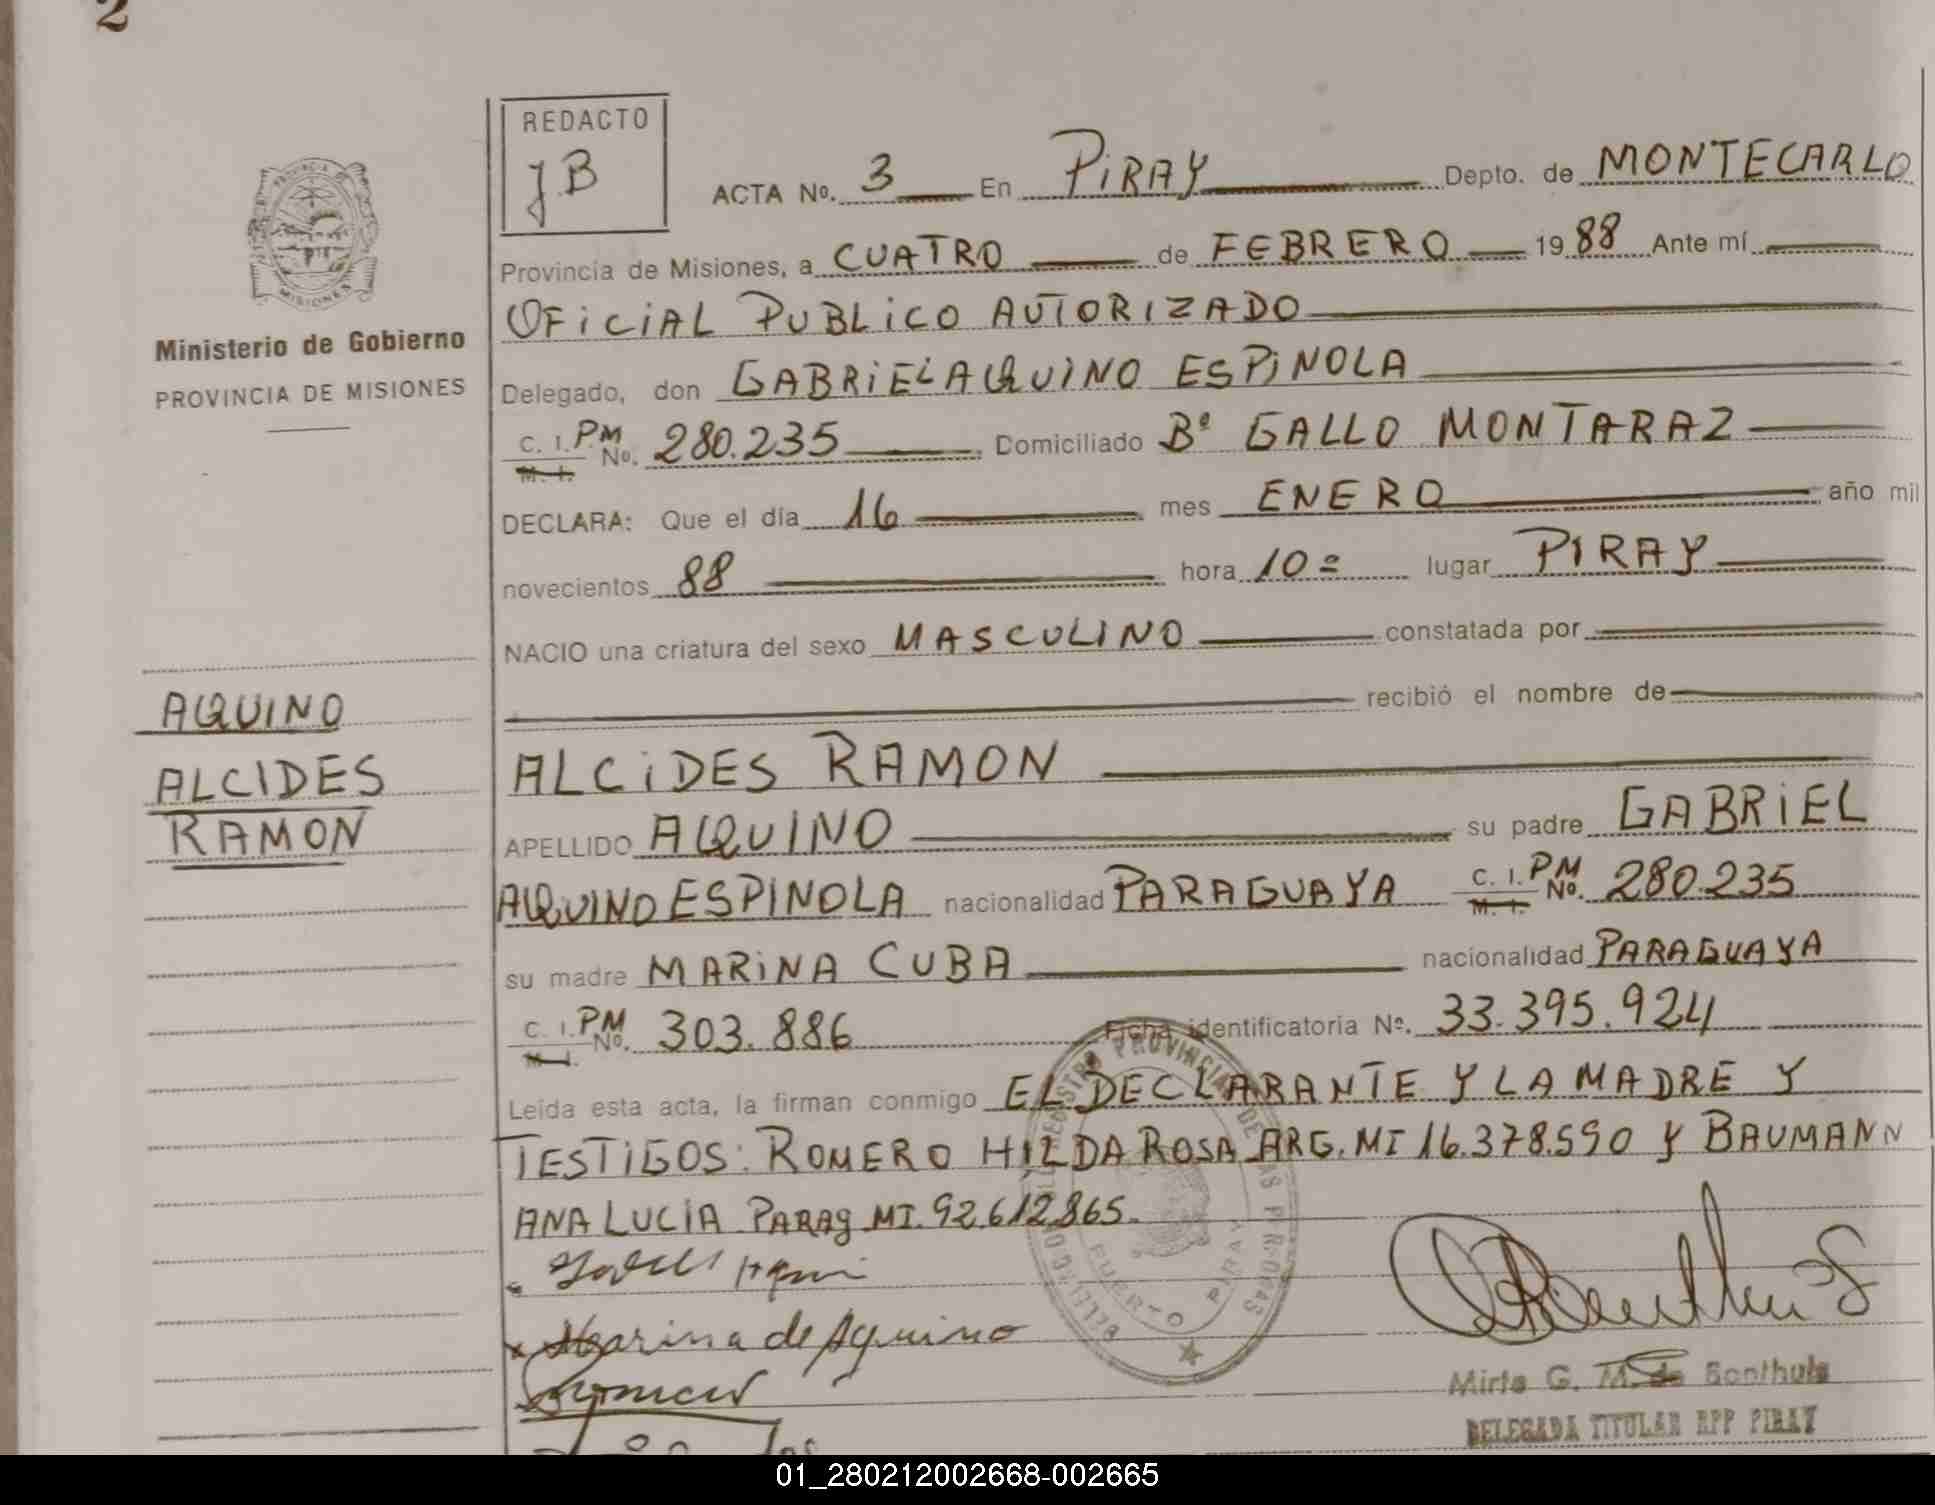 2
REDACTO
JB
ACTA No. 3 En PIRAY Depto. de MONTECARLO
Provincia de Misiones, a CUATRO de FEBRERO 1988 Ante mí
OFICIAL PUBLICO AUTORIZADO
Delegado, don GABRIEL AQUINO ESPINOLA
C. I. PM M. I. No. 280.235 Domiciliado Bº GALLO MONTARAZ
DECLARA: Que el día 16 mes ENERO año mil
novecientos 88 hora 10= lugar PIRAY
NACIO una criatura del sexo MASCULINO constatada por
recibió el nombre de
ALCIDES RAMON
APELLIDO AQUINO su padre GABRIEL
AQUINO ESPINOLA nacionalidad PARAGUAYA C. I. PM M. I. No. 280.235
su madre MARINA CUBA nacionalidad PARAGUAYA
C. I. PM M. I. No. 303.886 Ficha identificatoria Nº. 33.395.924
Leída esta acta, la firman conmigo EL DECLARANTE Y LA MADRE Y
TESTIGOS: ROMERO HILDA ROSA ARG. MI 16.378.590 Y BAUMANN
ANA LUCIA PARAG MI. 92.612.865.
Marina de Aquino
Mirta G. M. de Bonthuis
DELEGADA TITULAR RPP PIRAY
PROVINCIA DE
MISIONES
Ministerio de Gobierno
PROVINCIA DE MISIONES
AQUINO
ALCIDES
RAMON
REGISTRO PROVINCIAL DE LAS PERSONAS
PUERTO PIRAY
01_280212002668-002665